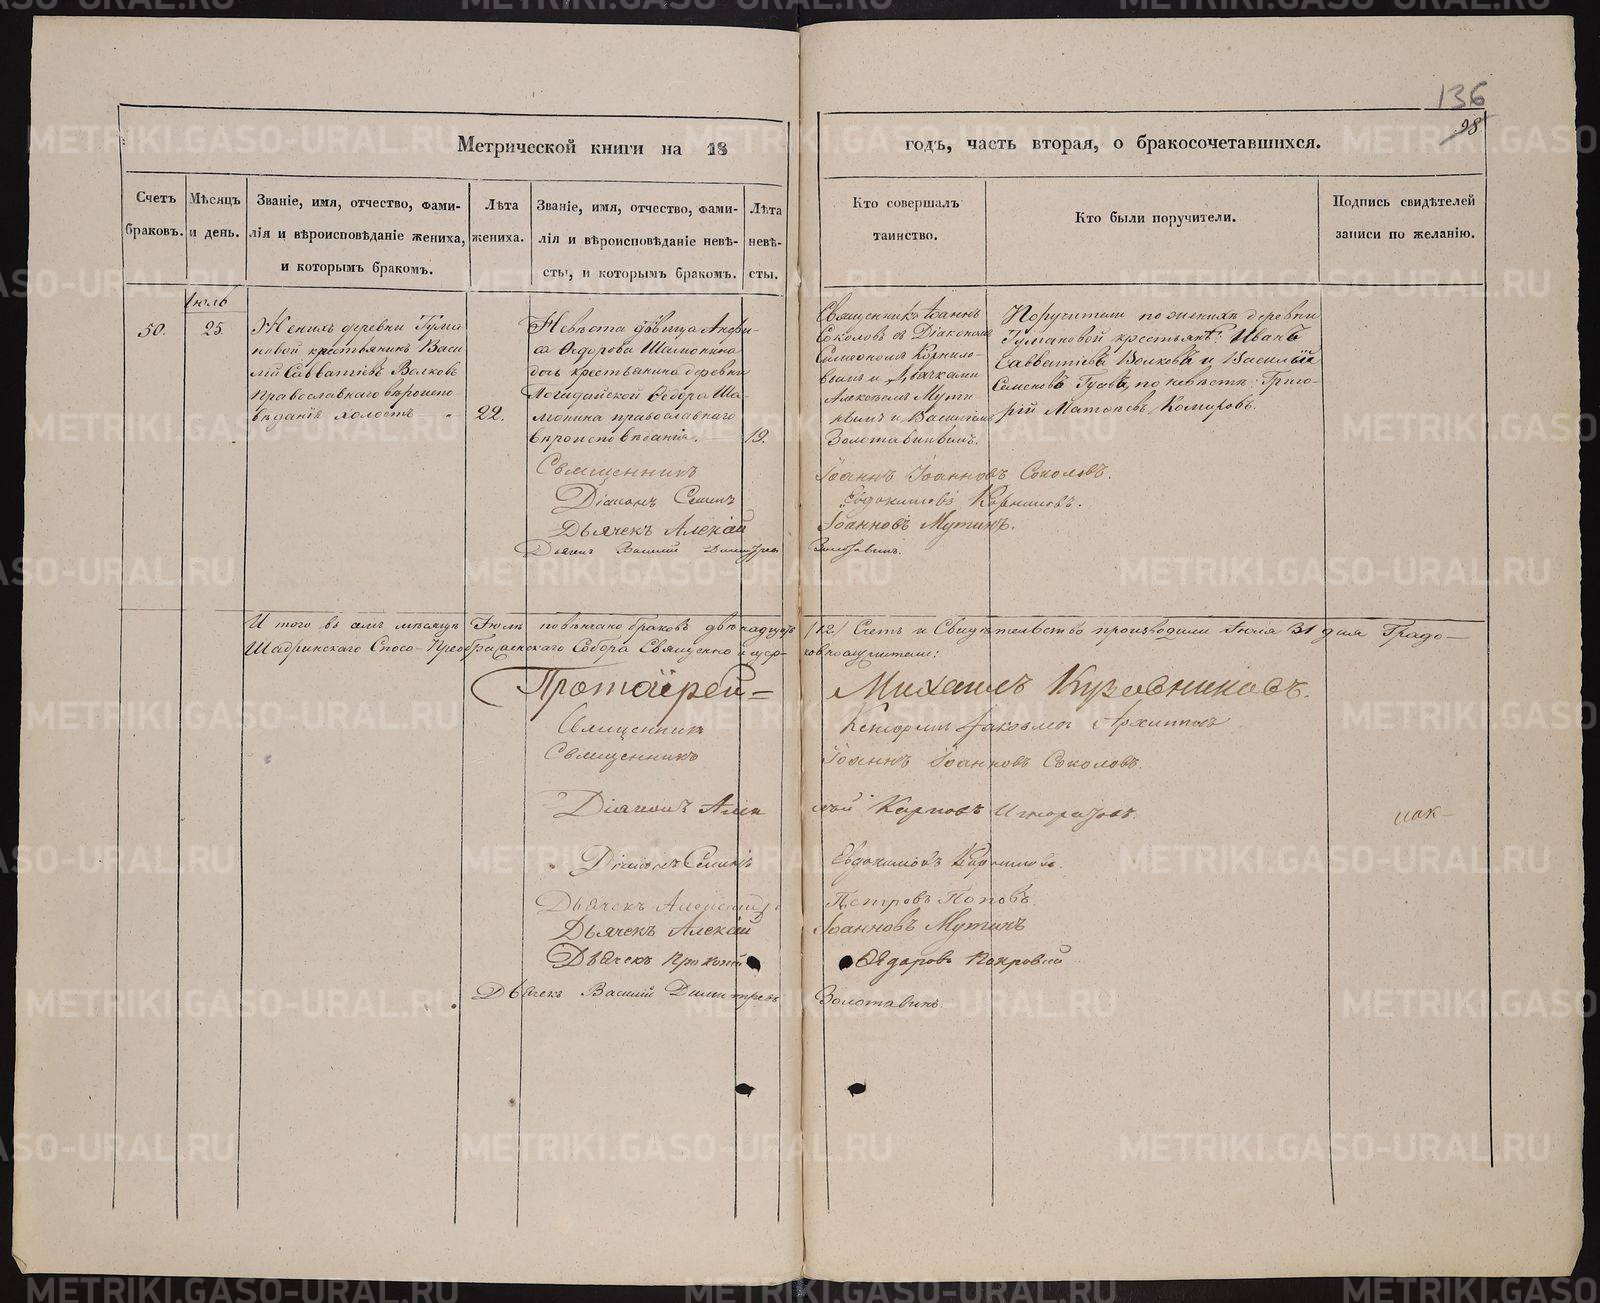 136
98
Метрической книги на 18
годъ, часть вторая, о бракосочетавшихся.
Счетъ браковъ.
Мѣсяцъ и день.
Званіе, имя, отчество, фами-
лія и вѣроисповѣданіе жениха,
и которымъ бракомъ.
Лѣта жениха.
Званіе, имя, отчество, фами-
лія и вѣроисповѣданіе невѣ-
сты, и которымъ бракомъ.
Лѣта невѣ-
сты.
Кто совершалъ
таинство.
Кто были поручители.
Подпись свидѣтелей
записи по желанію.
Іюль
50.
25.
Женихъ деревни Тума
новой крестьянинъ Васи
лій Савватіевъ Волковъ
православнаго вѣроиспо
вѣданія холостъ
22.
Невѣста дѣвица Анфи-
са Ѳедорова Шамонина
дочь крестьянина деревни
Ѳедора Ша-
монина православнаго
вѣроисповѣданія.
19.
Священникъ Іоаннъ
Соколовъ съ Діакономъ
Симеономъ Корнило-
вымъ и Дьячками
Алексѣемъ Мути
нымъ и Василіемъ
Золотавинымъ.
Поручители по женихѣ деревни
Тумановой крестьяне: Иванъ
Савватіевъ Волковъ и Василій
Семеновъ по невѣстѣ: Григо-
рій Комаровъ.
Священникъ Іоаннъ Іоанновъ Соколовъ.
Діаконъ Семенъ Евдокимовъ Корниловъ.
Дьячекъ Алексій Іоанновъ Мутинъ.
Дьячекъ Василій Димитріевъ Золотавинъ.
Итого въ семъ мѣсяцѣ Іюлѣ повѣнчано браковъ двѣнадцать (12.) Счетъ и Свидѣтельство производили Іюля 31 дня Градо-
Шадринскаго Спасо-Преображенскаго Собора Священно и цер- ковнослужители:
Протоіерей = Михаилъ Кузовниковъ.
Священникъ Іаковлевъ Архиповъ
Священникъ Іоаннъ Іоанновъ Соколовъ.
Діаконъ Алек сѣй Карповъ
Діаконъ Семенъ Евдокимовъ Корниловъ.
Дьячекъ Александръ Петровъ Поповъ
Дьячекъ Алексій Іоанновъ Мутинъ
Дьячекъ Прокопій Ѳедоровъ Покровскій
Дьячекъ Василій Димитріевъ Золотавинъ.
METRIKI.GASO-URAL.RU